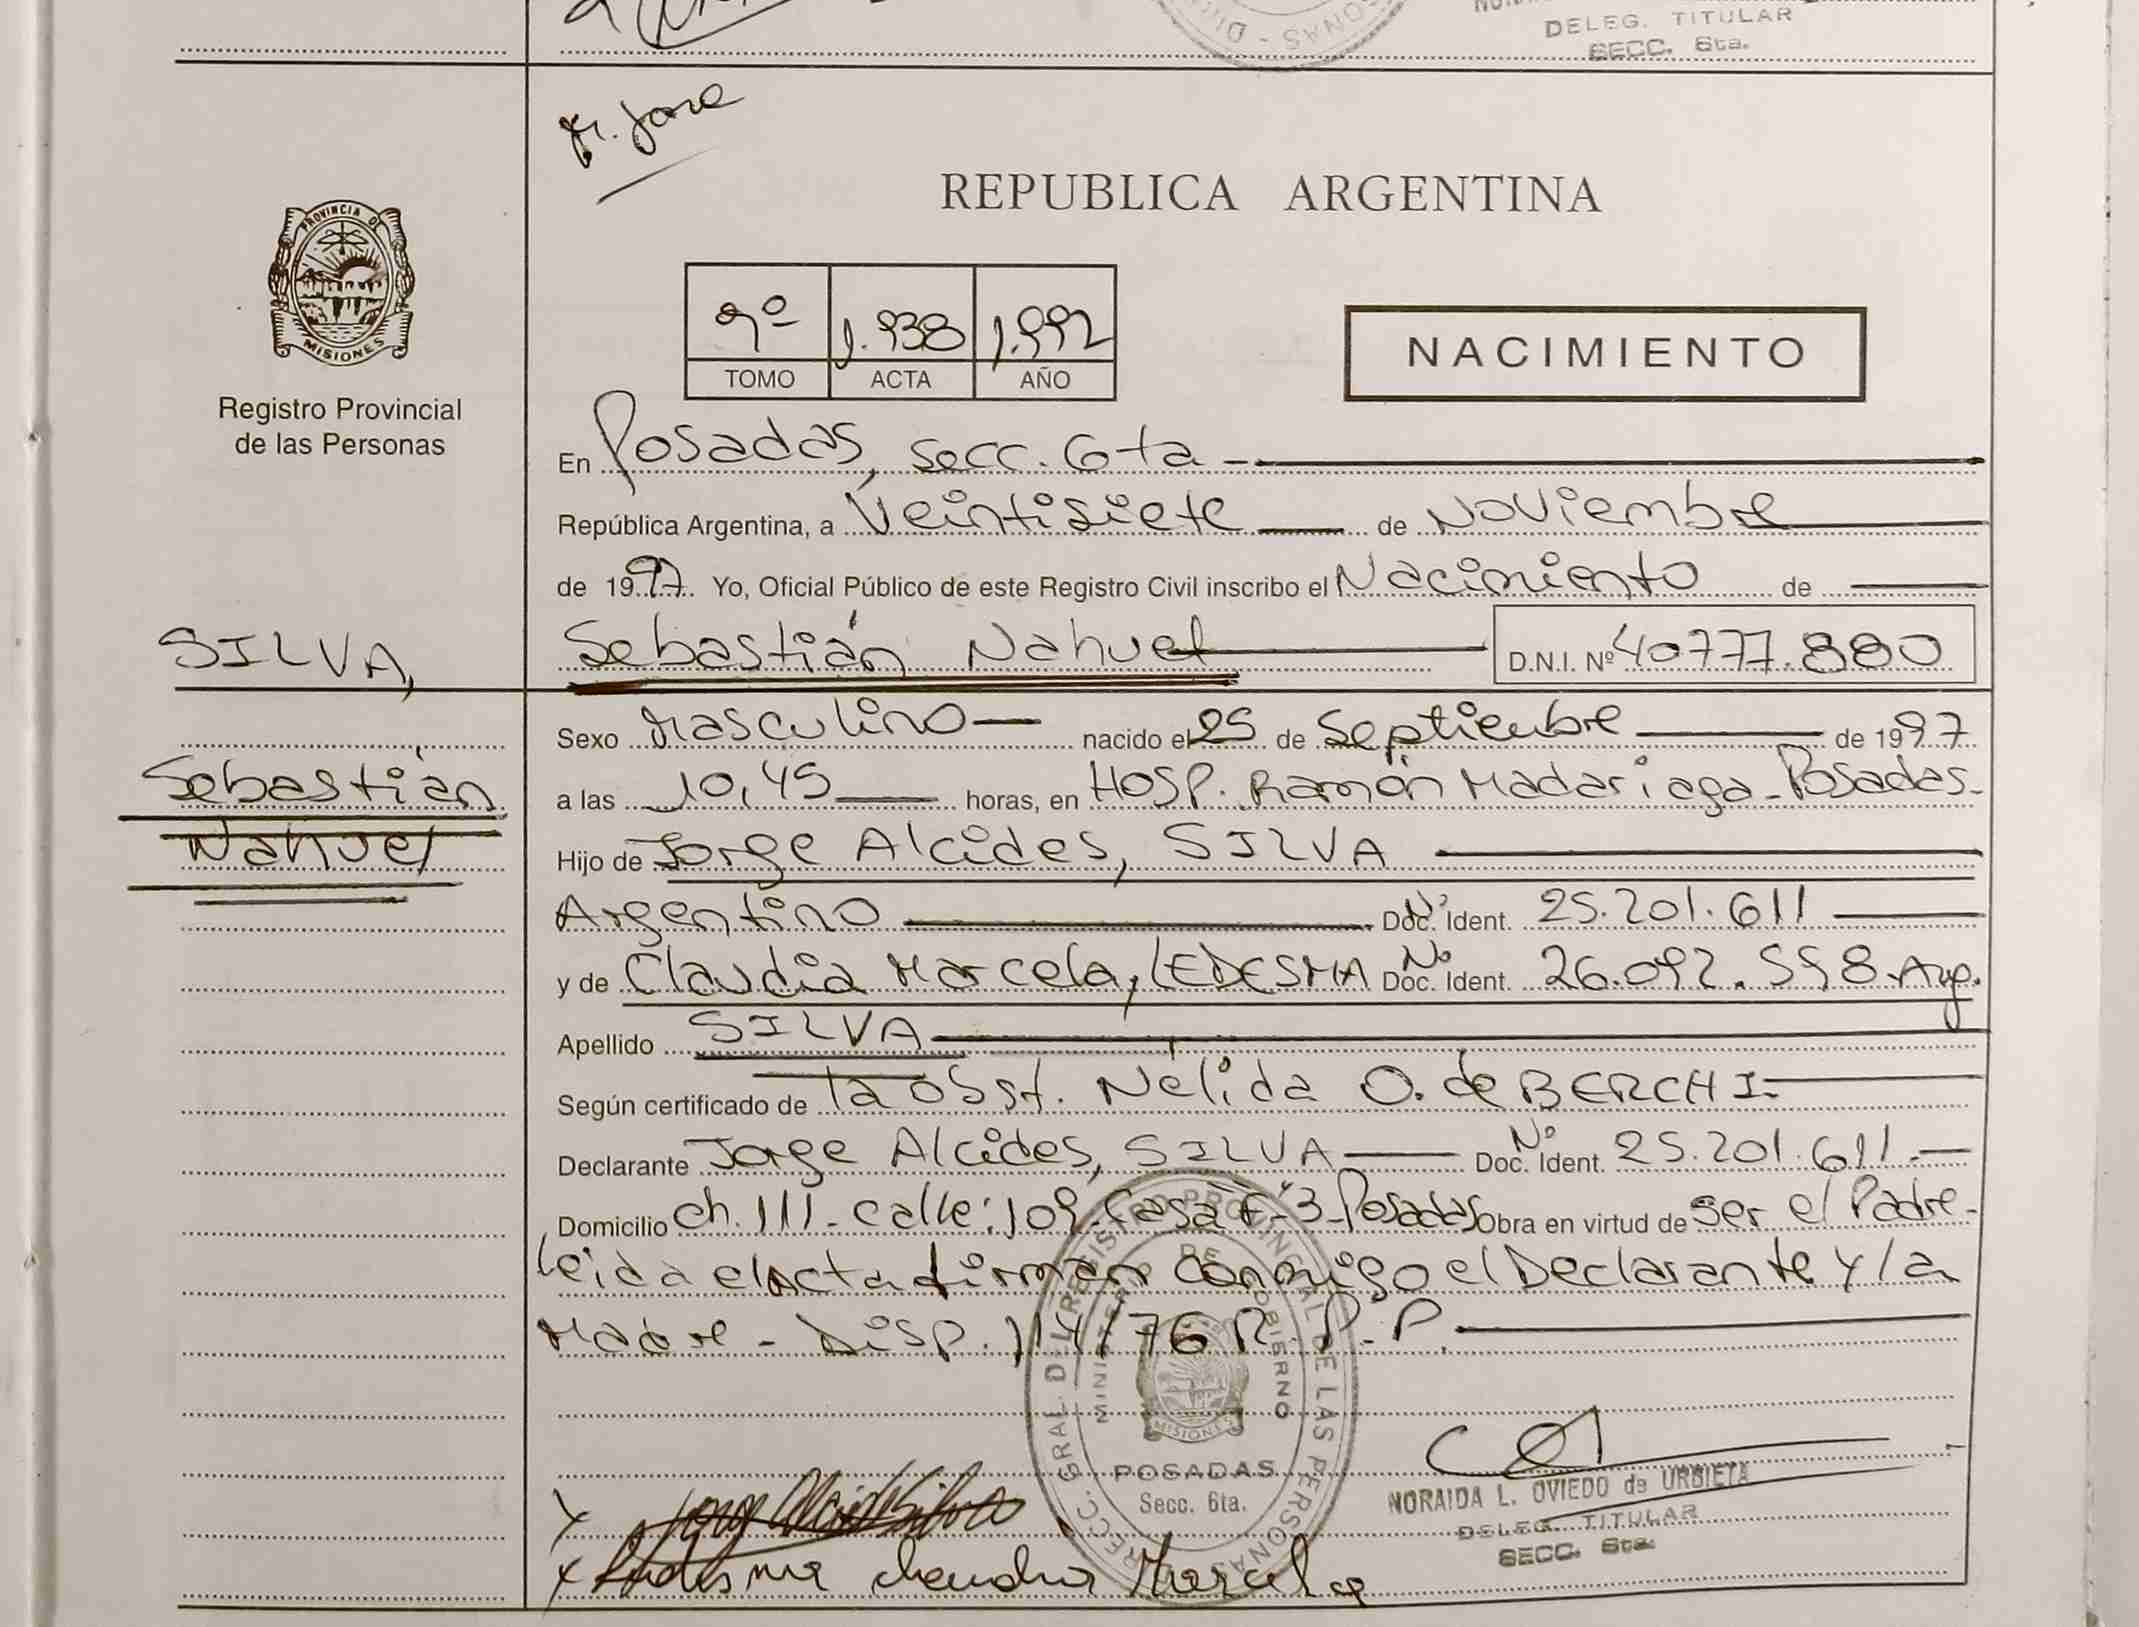 DELEG. TITULAR
SECC. 6ta.
REPUBLICA ARGENTINA
PROVINCIA DE
MISIONES
Registro Provincial
de las Personas
9º 1.938 1.992
TOMO ACTA AÑO
NACIMIENTO
En Posadas, secc. 6ta -
República Argentina, a Veintisiete de Noviembre
de 1997. Yo, Oficial Público de este Registro Civil inscribo el Nacimiento de
SILVA,
Sebastián Nahuel D.N.I. Nº 40777.880
Sexo Masculino nacido el 25 de Septiembre de 1997
Sebastián
Nahuel
a las 10,45 horas, en HOSP. Ramón Madariaga - Posadas -
Hijo de Jorge Alcides, SILVA
Argentino Nº Doc. Ident. 25.201.611
y de Claudia Marcela, LEDESMA Nº Doc. Ident. 26.092.558 Arg.
Apellido SILVA
Según certificado de la Obst. Nélida O. de BERCHI.
Declarante Jorge Alcides, SILVA Nº Doc. Ident. 25.201.611.
Domicilio ch. 111 - calle: 109 - Casa F-3 - Posadas Obra en virtud de ser el Padre -
Leida el Acta firman conmigo el Declarante y la
Madre - Disp. 114/76 R.P.P.
RECC. GRAL. DEL REGISTRO PROVINCIAL DE LAS PERSONAS
MINISTERIO DE GOBIERNO
MISIONES
POSADAS
Secc. 6ta.
NORAIDA L. OVIEDO de URBIETA
DELEG. TITULAR
SECC. 6ta.
x Jorge Alcides Silva
x Ledesma Claudia Marcela